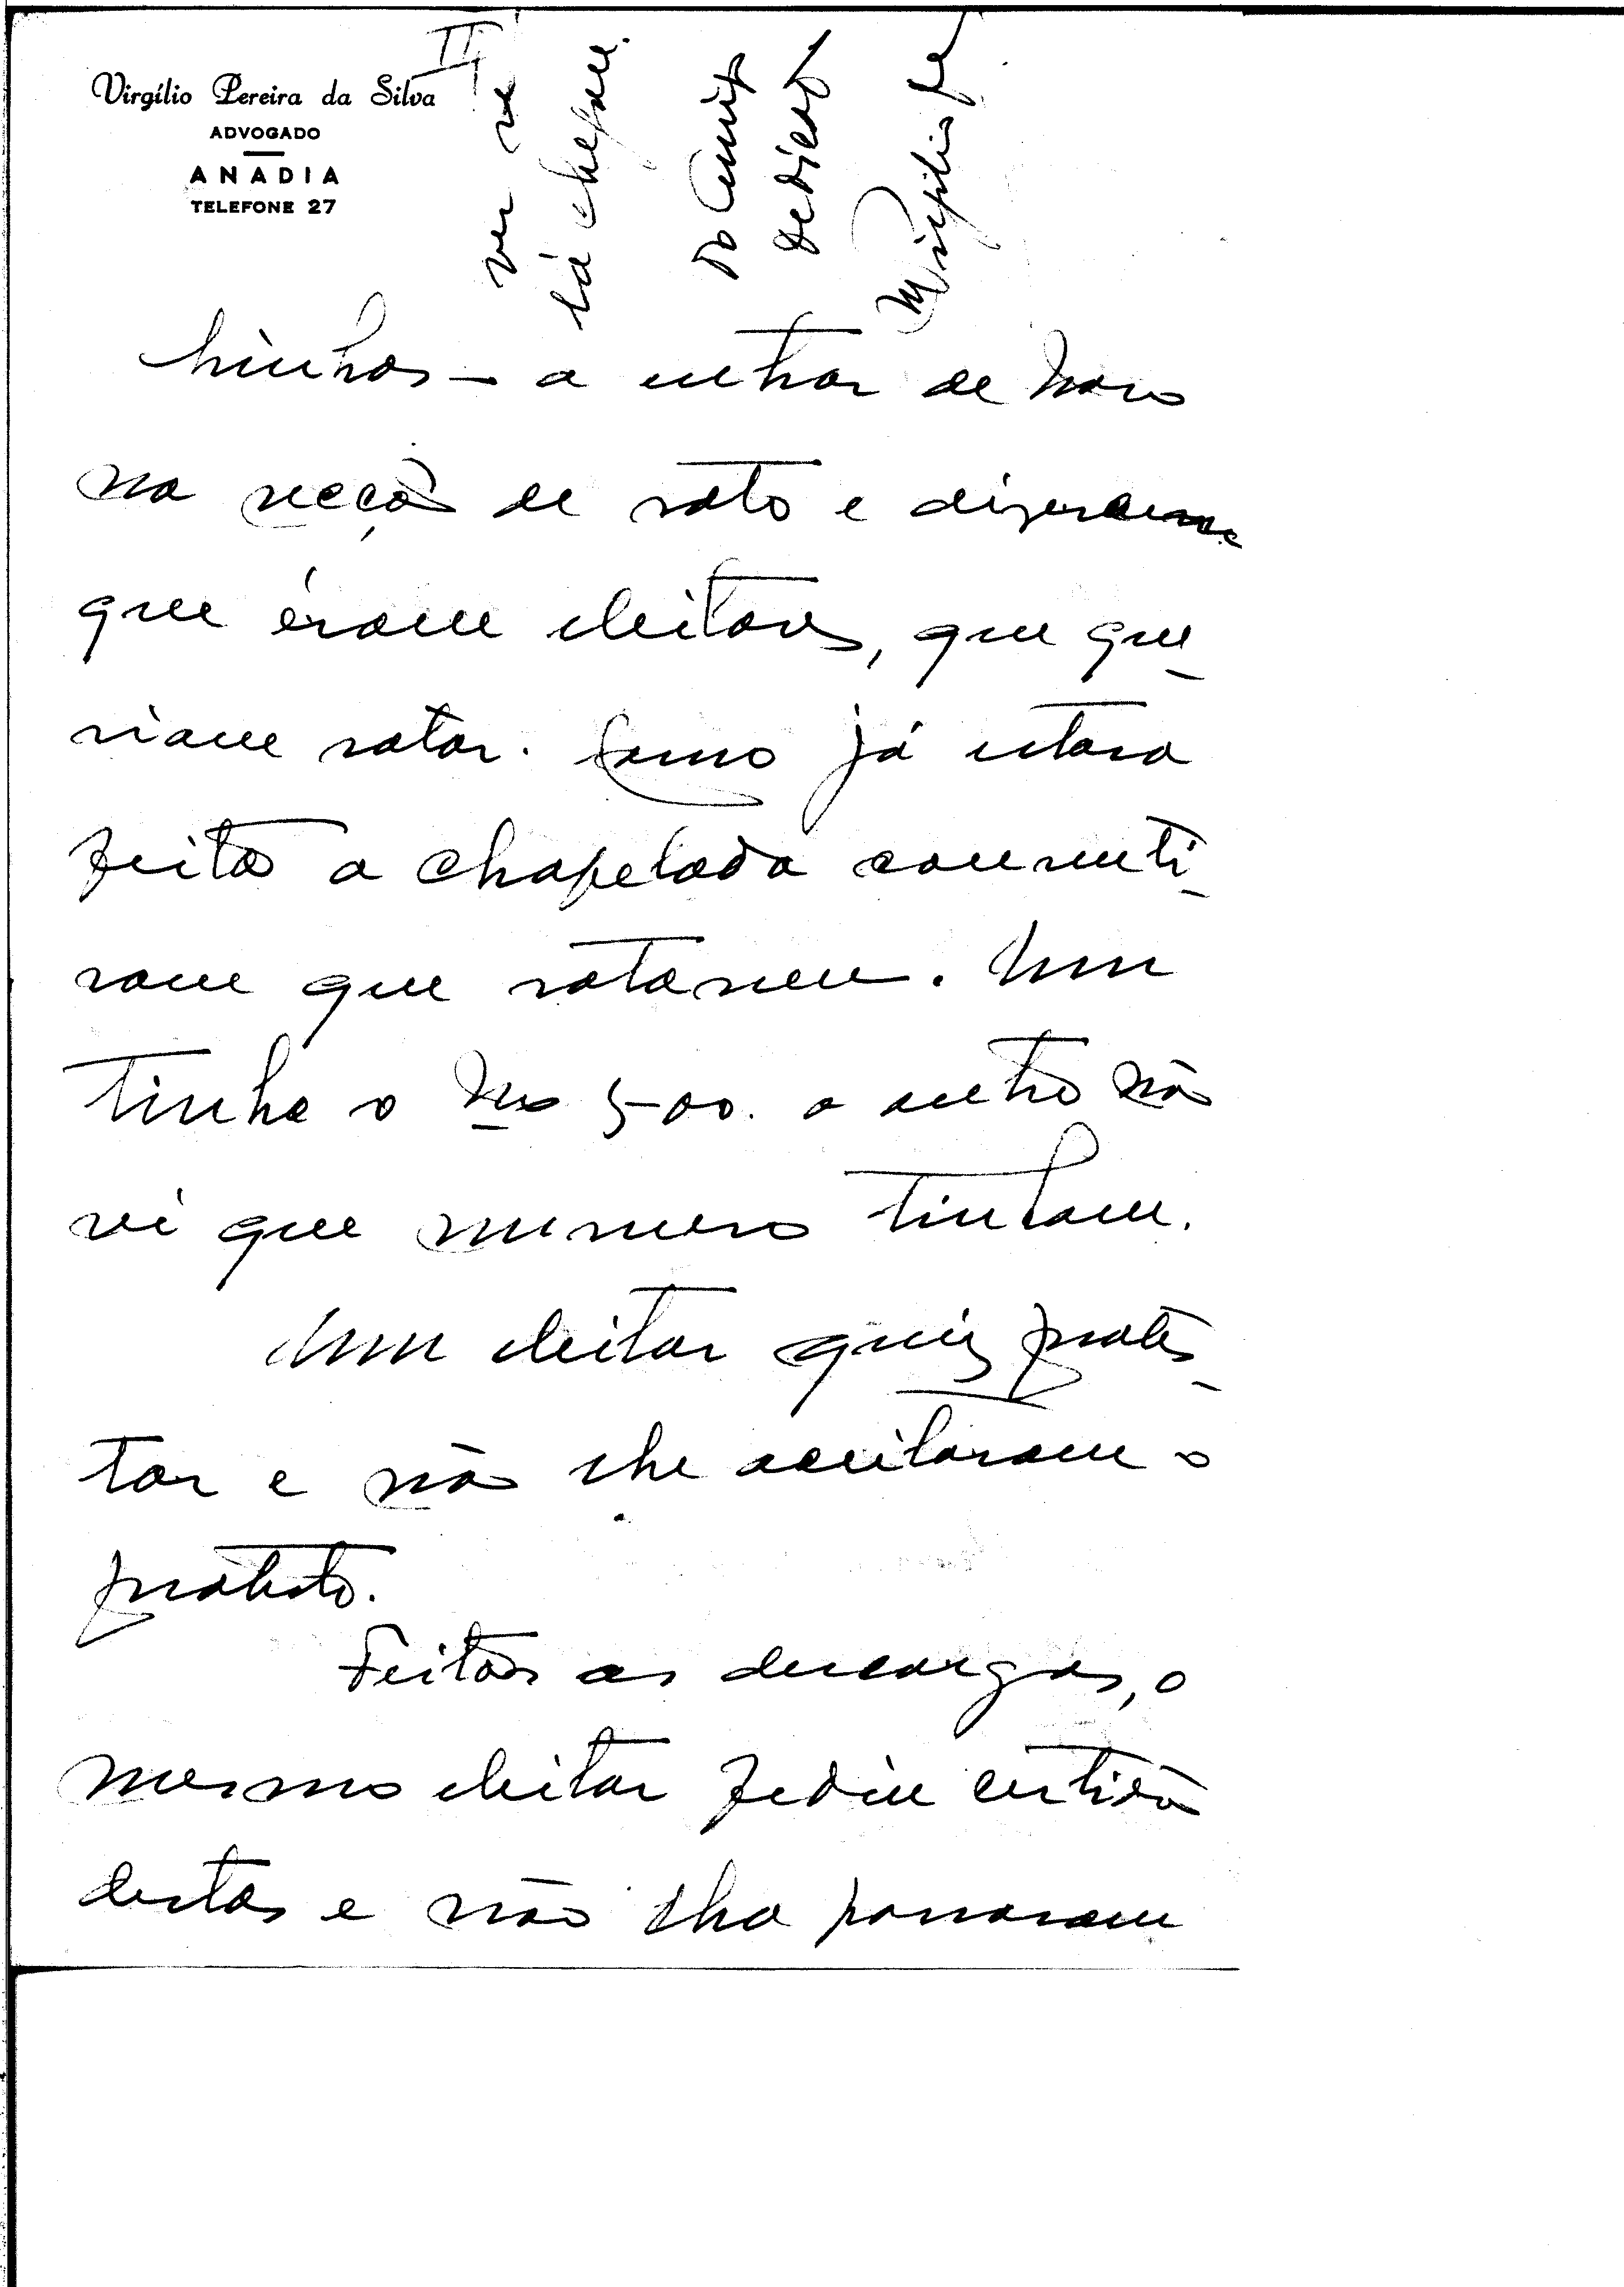 Virgílio Pereira da Silva
ADVOGADO
ANADIA
TELEFONE 27
II
ver se
lá chegou.
Do Amigo
Dedicado
Virgilio
ninhos - a entrar de novo
na secção de voto e dizerem
que éram eleitores, que que-
riam votar. Como já estava
feita a chapelada consenti-
ram que votassem. Um
tinha o No 500. o outro não
vi que numero tinham.
Um eleitor quiz protes-
tar e não lhe aceitaram o
protesto.
Feitas as descargas, o
mesmo eleitor pediu certidão
destas e não lha passaram